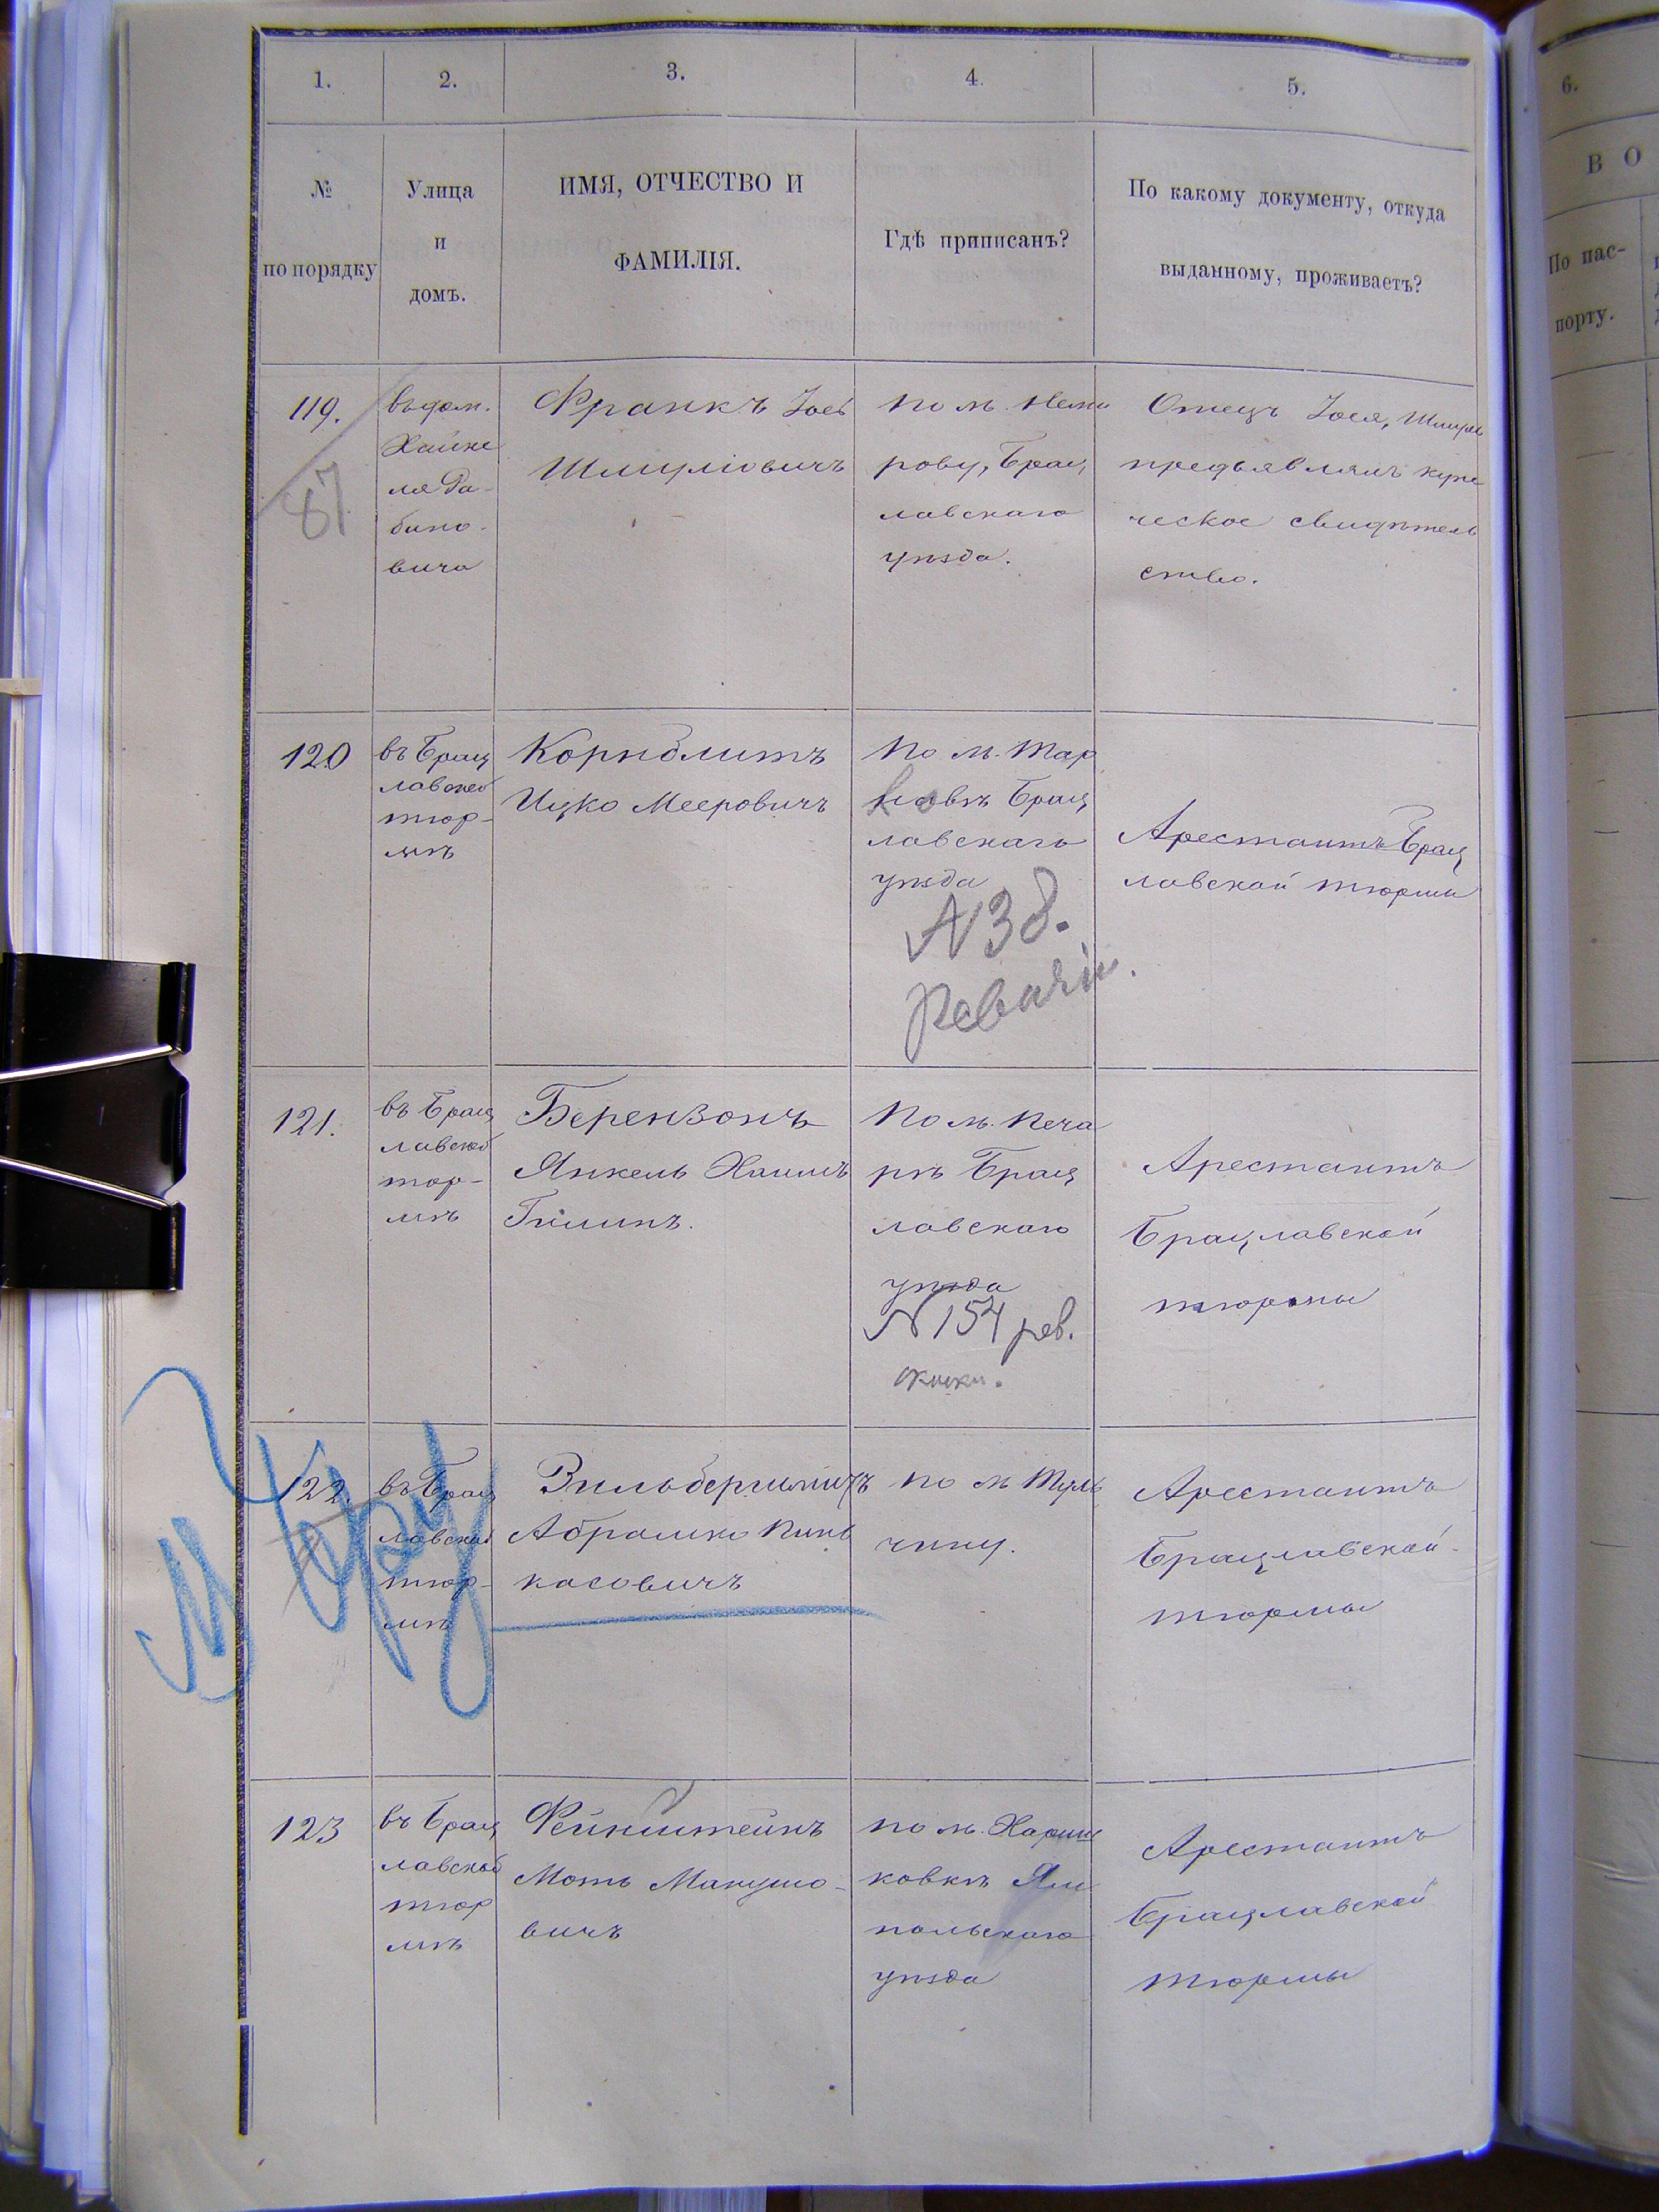 1. 2. 3. 4. 5.
№ по порядку
Улица и домъ.
ИМЯ, ОТЧЕСТВО И ФАМИЛІЯ.
Гдѣ приписанъ?
По какому документу, откуда выданному, проживаетъ?
6.
В О
По пас-
порту.
119.
87
въ дом.
Хайке
ля Ра-
бино-
вича
Франкъ Іось
Шмуліовичъ
По м. Неми
рову, Брац
лавскаго
уѣзда.
Отецъ Іося, Шмуль
предъявлялъ купе
ческое свидѣтель
ство.
120
въ Брац
лавской
тюр-
мѣ
Корнблитъ
Ицко Мееровичъ
По м. Тар
Брац
лавскаго
уѣзда
Арестантъ Брац
лавской тюрьмы
121.
въ Брац
лавской
тюр-
мѣ
Берензонъ
Янкель Хаимъ
По м. Печа
рѣ Брац
лавскаго
уѣзда
N 154 рев.
Арестантъ
Брацлавской
тюрьмы
122
въ Брац
лавской
тюр-
мѣ
Абрамко Пинь
касовичъ
По м Туль
чину.
Арестантъ
Брацлавской
тюрьмы
123
въ Брац
лавской
тюр
мѣ
Фейнштейнъ
Моть Манушо-
вичъ
по м.
ковкѣ Ям
польскаго
уѣзда
Арестантъ
Брацлавской
тюрьмы